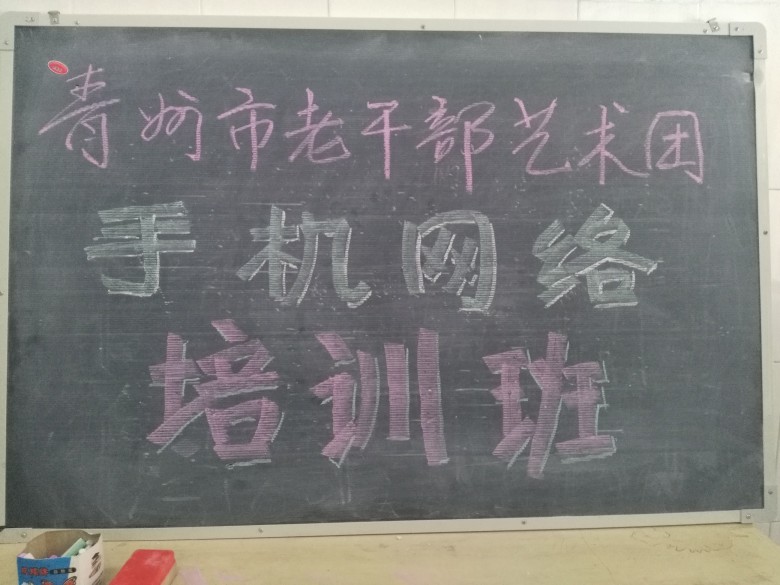 青州市老干部艺术团
手机网络
培训班